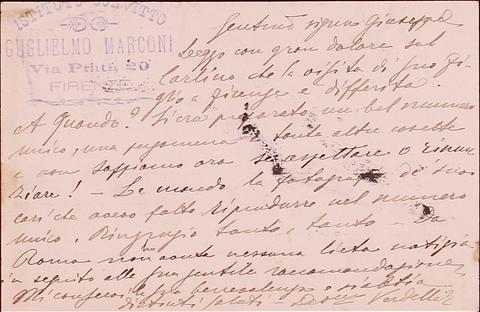 ISTITUTO CONVITTO
GUGLIELMO MARCONI
Via Prati 20
FIRENZE
signor Giuseppe
Leggo con gran dolore sul
cartino che la visita di suo fi-
glio a Firenze è differita.
A quando? Si era preparato un bel numero
unico, una tante altre cosette
e non sappiamo ora se aspettare o rinun
ziare! Le mando la fotografia de' suoi
cari che avevo fatto riprodurre nel numero
unico. Ringrazio tanto, tanto - Da
Roma non nessuna lieta notizia
in seguito alla sua gentile raccomandazione
Mi conservi la sua benevolenza e
distinti saluti -